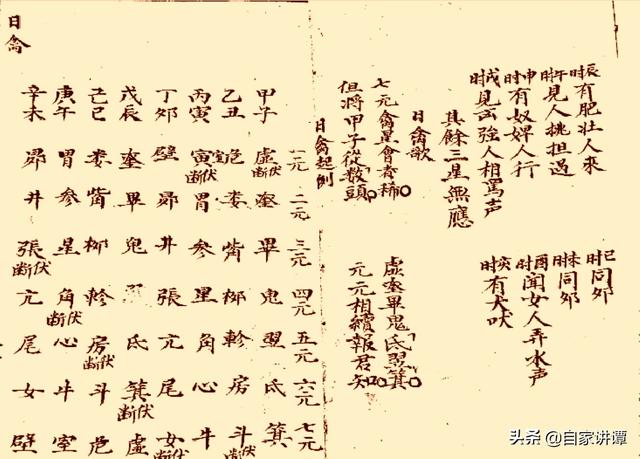 辰时有肥壮人來
午时見人挑担過
申时有奴婢人行
戌时見云強人相罵声
其餘三星無應
巳时同夘
未时同夘
酉时闻女人弄水声
亥时有犬吠
日禽歌
七元禽星會者稀 虚奎畢鬼氐翌箕
但將甲子從数頭 元元相續報君知
日禽起例
一元 二元 三元 四元 五元 六元 七元
甲子 虚 奎 畢 鬼 翌 氐 箕
乙丑 婁 觜 柳 軫 房 斗断伏
丙寅 断伏 胃 参 星 角 心 牛
丁夘 壁 昴 井 張 亢 尾 女断伏
戊辰 奎 畢 鬼 氐 箕断伏 虚
己巳 娄 觜 柳 軫 房断伏 斗 危
庚午 胃 参 星 角断伏 心 牛 室
辛未 昴 井 張断伏 亢 尾 女 壁
日禽
头条 @自家讲谭